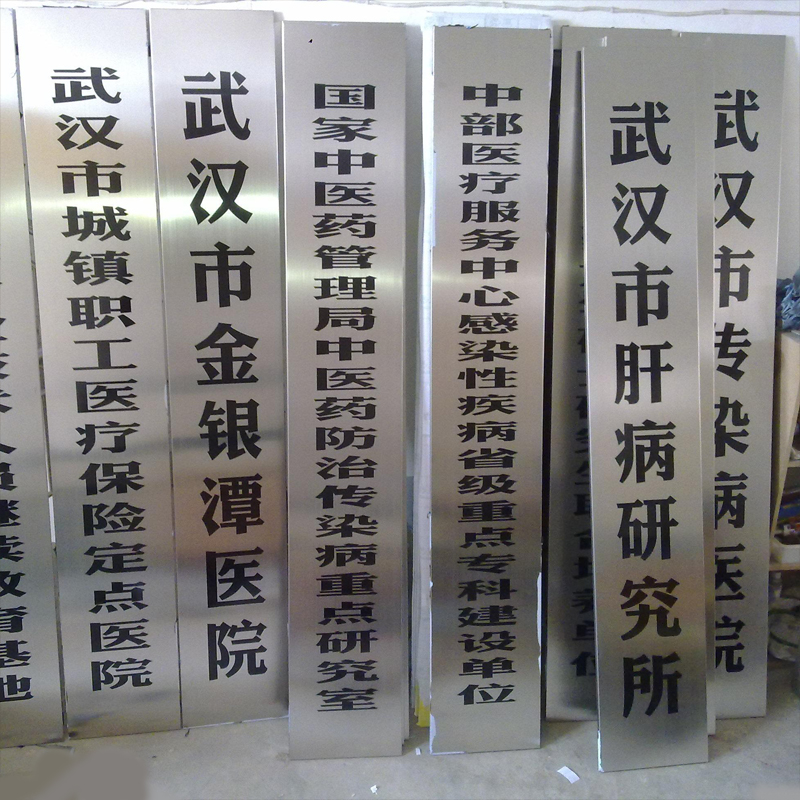 武汉市城镇职工医疗保险定点医院
武汉市金银潭医院
国家中医药管理局中医药防治传染病重点研究室
中部医疗服务中心感染性疾病省级重点专科建设单位
武汉市肝病研究所
武汉市传染病医院
人员继续教育基地